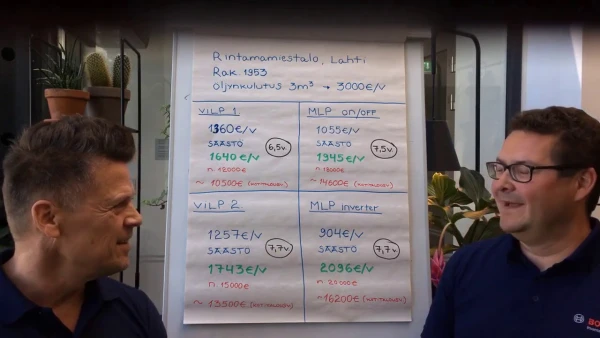 Rintamamiestalo, Lahti
Rak. 1953
öljynkulutus 3m³ → 3000€/v
VILP 1
1360€/v
SÄÄSTÖ
1640€/v
6,5v.
n. 12000€
~ 10500€ (KOTITALOUSV.)
MLP on/off
1055€/v
SÄÄSTÖ
1945€/v
7,5v.
n. 18000€
~ 14600€ (KOTITALOUSV.)
VILP 2.
1257€/v
SÄÄSTÖ
1743€/v
7,7v.
n. 15000€
~ 13500€ (KOTITALOUSV.)
MLP inverter
904€/v
SÄÄSTÖ
2096€/v
7,7v.
n. 20000€
~16200€ (KOTITALOUSV.)
BO